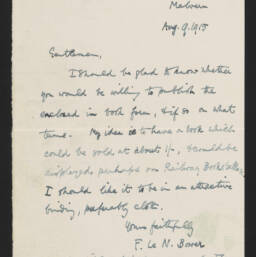 Malvern
Aug. 9. 1915
Gentlemen,
I should be glad to know whether
you would be willing to publish the
enclosed in book form, & if so on what
terms. My idea is to have a book which
could be sold at about 1/-, & could be
displayed perhaps on Railway Bookstalls.
I should like it to be in an attractive
binding, preferably cloth.
Yours faithfully
F. Le N. Bower